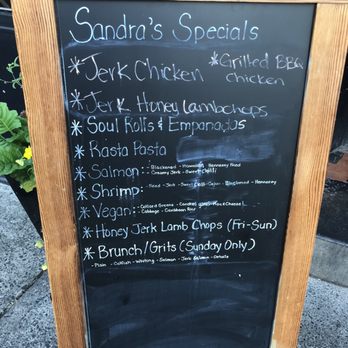 Sandra's Specials
* Jerk Chicken * Grilled BBQ chicken
* Jerk Honey lambchops
* Soul Rolls & Empanadas
* Rasta Pasta
* Salmon - Blackened - Hawaiian - Hennessy Fried
- Creamy Jerk - Sweet Chili
* Shrimp - Fried - Jerk - Sweet Chili - Cajun - Blackened - Hennessy
* Vegan - Collard Greens - Candied yams - Mac & Cheese
- Cabbage - Caribbean Rice
* Honey Jerk Lamb Chops (Fri-Sun)
* Brunch/Grits (Sunday Only)
- Plain - Catfish - Whiting - Salmon - Jerk Salmon